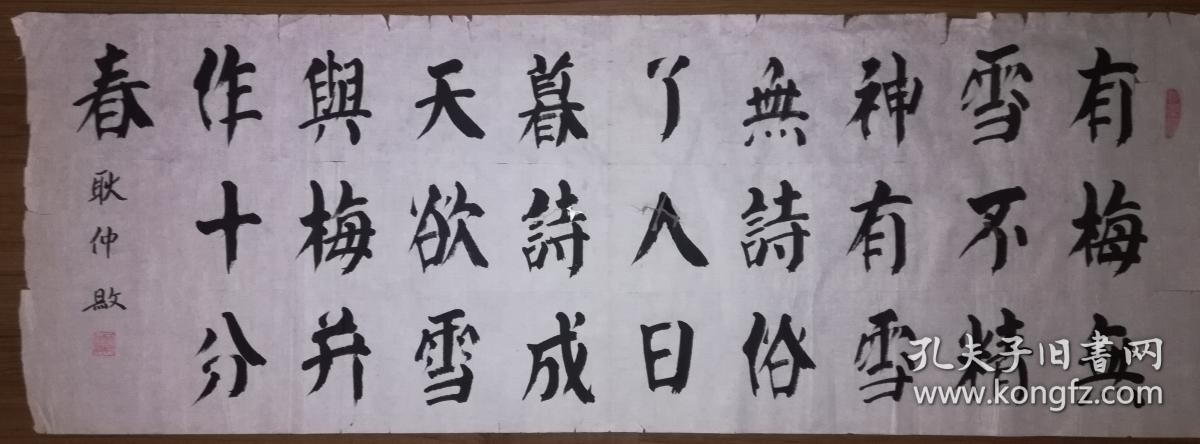 有梅無
雪不精
神有雪
無詩俗
了人日
暮詩成
天欲雪
與梅并
作十分
春
耿仲
孔夫子旧書网
www.kongfz.com